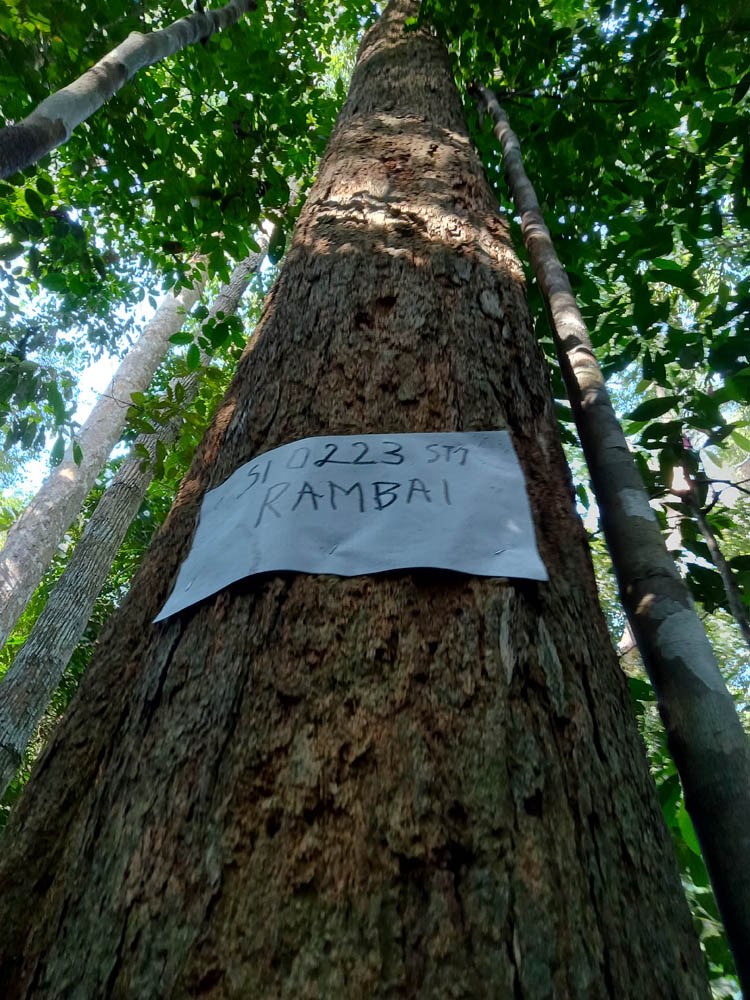 SI 0223 STM
RAMBAI